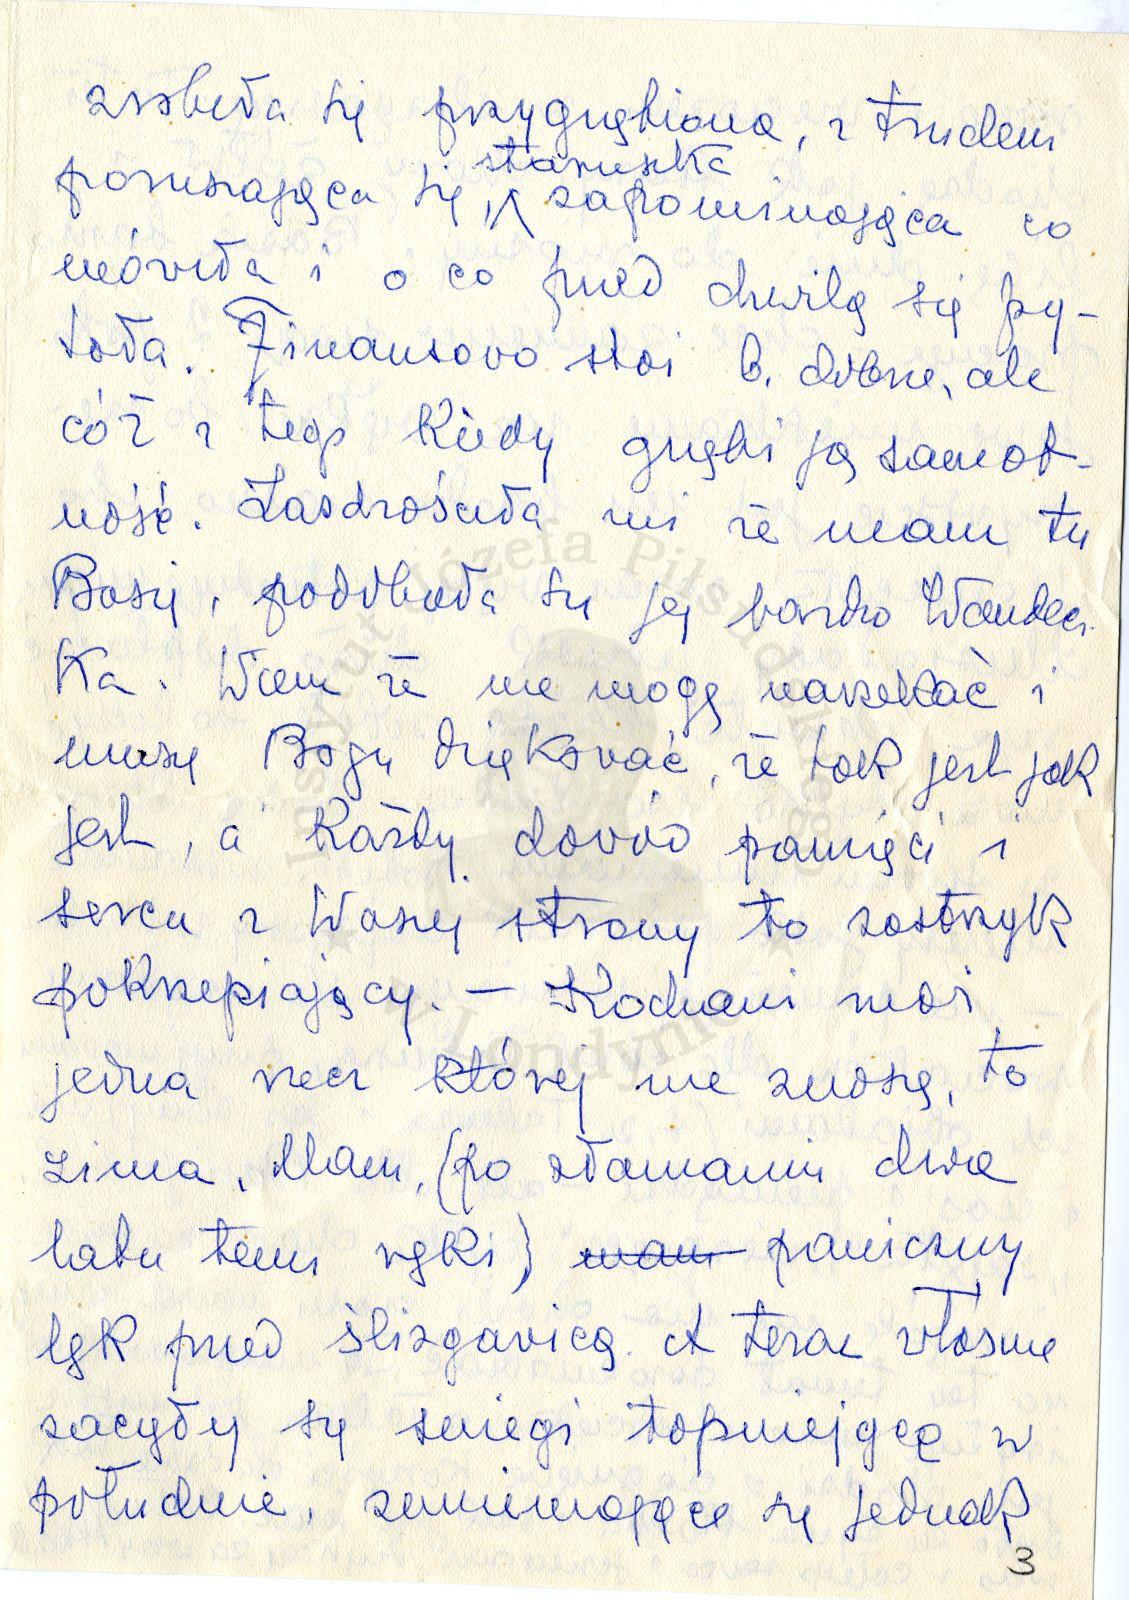 zrobiła się przygnębiona, z trudem
poruszająca się, staruszka zapominająca co
mówiła i o co przed chwilą się py-
tała. Finansowo stoi b. dobrze, ale
cóż z tego kiedy gnębi ją samot-
ność. Zazdrościła mi że mam tu
Basię, podobała się jej bardzo Wandecz
ka. Wiem że nie mogę narzekać i
muszę Bogu dziękować, że tak jest jak
jest, a każdy dowód pamięci i
serca z Waszej strony to zastrzyk
pokrzepiający. — Kochani moi
jedna rzecz której nie znoszę, to
zima. Mam, (po złamaniu dwa
lata temu ręki) mam paniczny
lęk przed ślizgawicą. A teraz właśnie
zaczęły się śniegi topniejące w
południe, zamieniające się jednak
3
Instytut Józefa Piłsudskiego
w Londynie